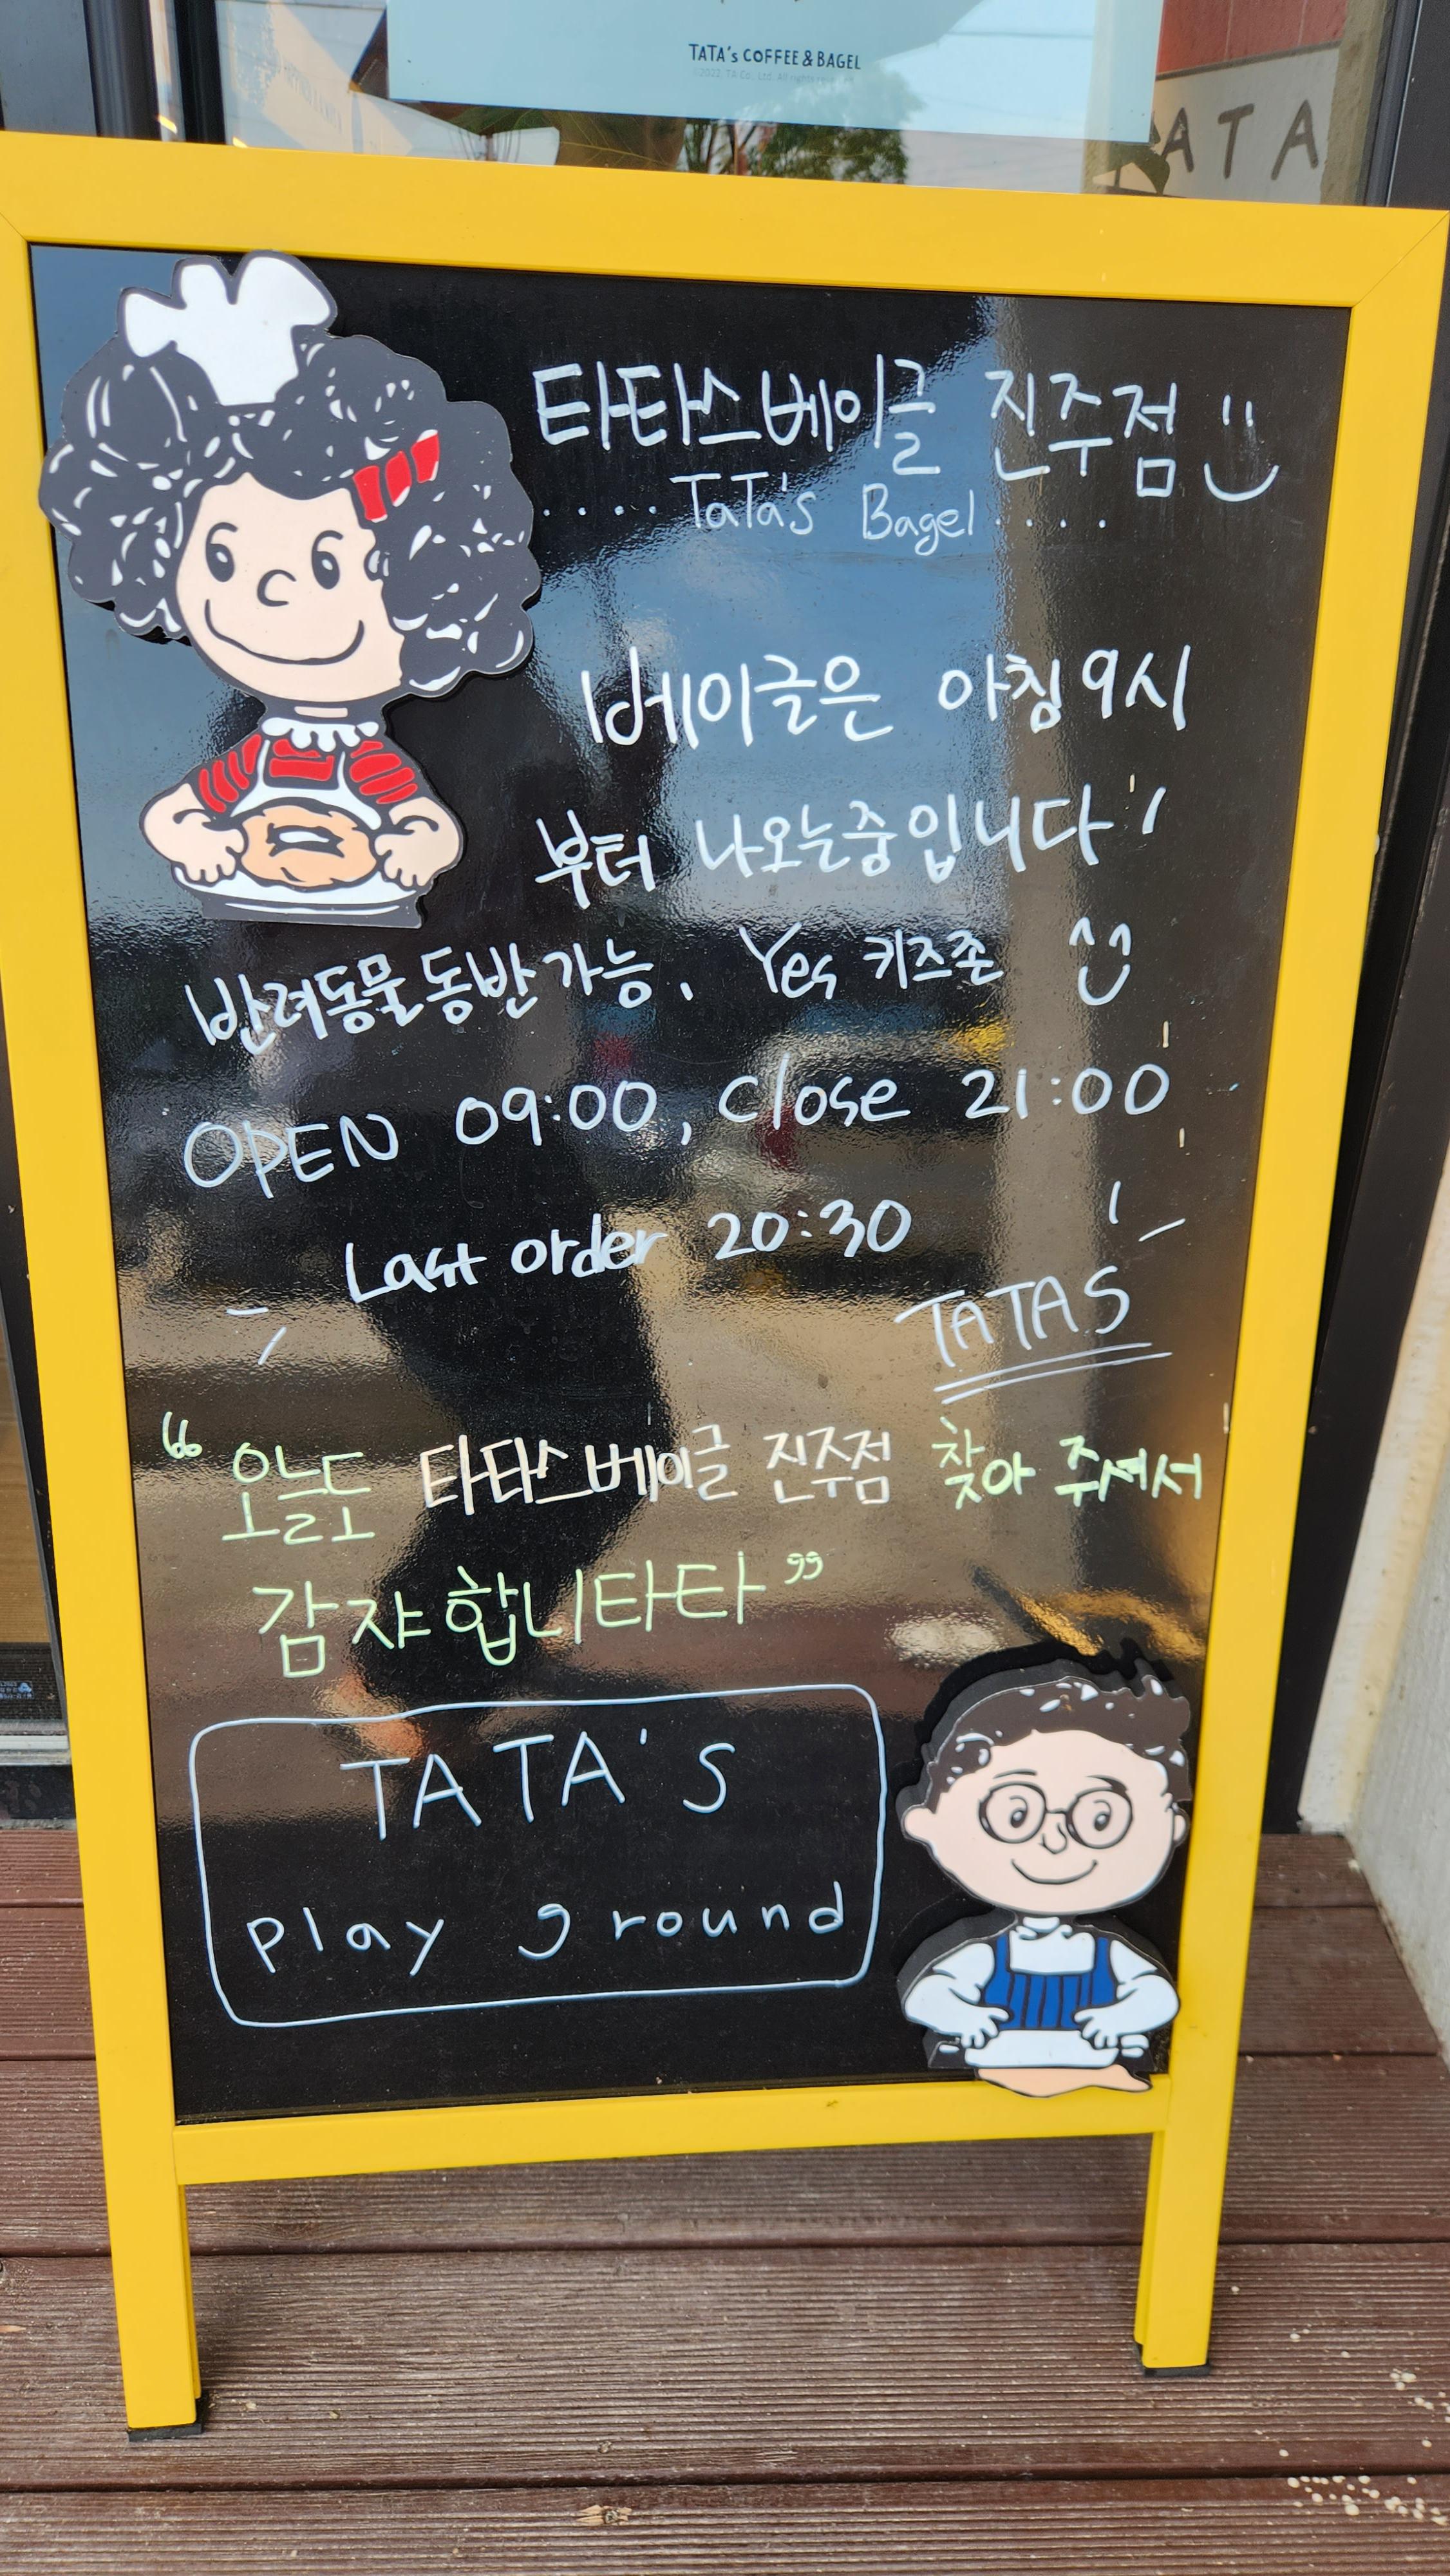 TATA's COFFEE & BAGEL
TATA
타타스베이글 진주점
TaTa's Bagel
베이글은 아침 9시
부터 나오는중입니다
반려동물동반가능, Yes 키즈존
OPEN 09:00, Close 21:00
Last order 20:30
TATAS
“오늘도 타타스베이글 진주점 찾아 주셔서
감쟈합니타타”
TATA's
Play ground